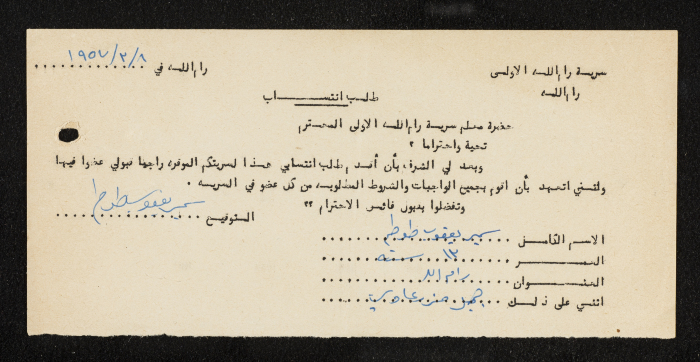 سرية رام الله الاولى
رام الله
رام الله في ١٩٥٧/٢/٨
طلب انتساب
حضرة معلم سرية رام الله الاولى المحترم
تحية واحتراما ؟
وبعد لي الشرف بأن أقدم طلب انتسابي هذا لسريتكم الموقر، راجيا قبولي عضوا فيها
ولتنني اتعهد بأن اقوم بجميع الواجبات والشروط المطلوبه من كل عضو في السريه .
وتفضلوا بقبول فائق الاحترام ؟؟
التوقيع
الاسم الكامل سمير يعقوب
العمر ١٣ سنة
العنوان رام الله
اثني على ذلك جميل